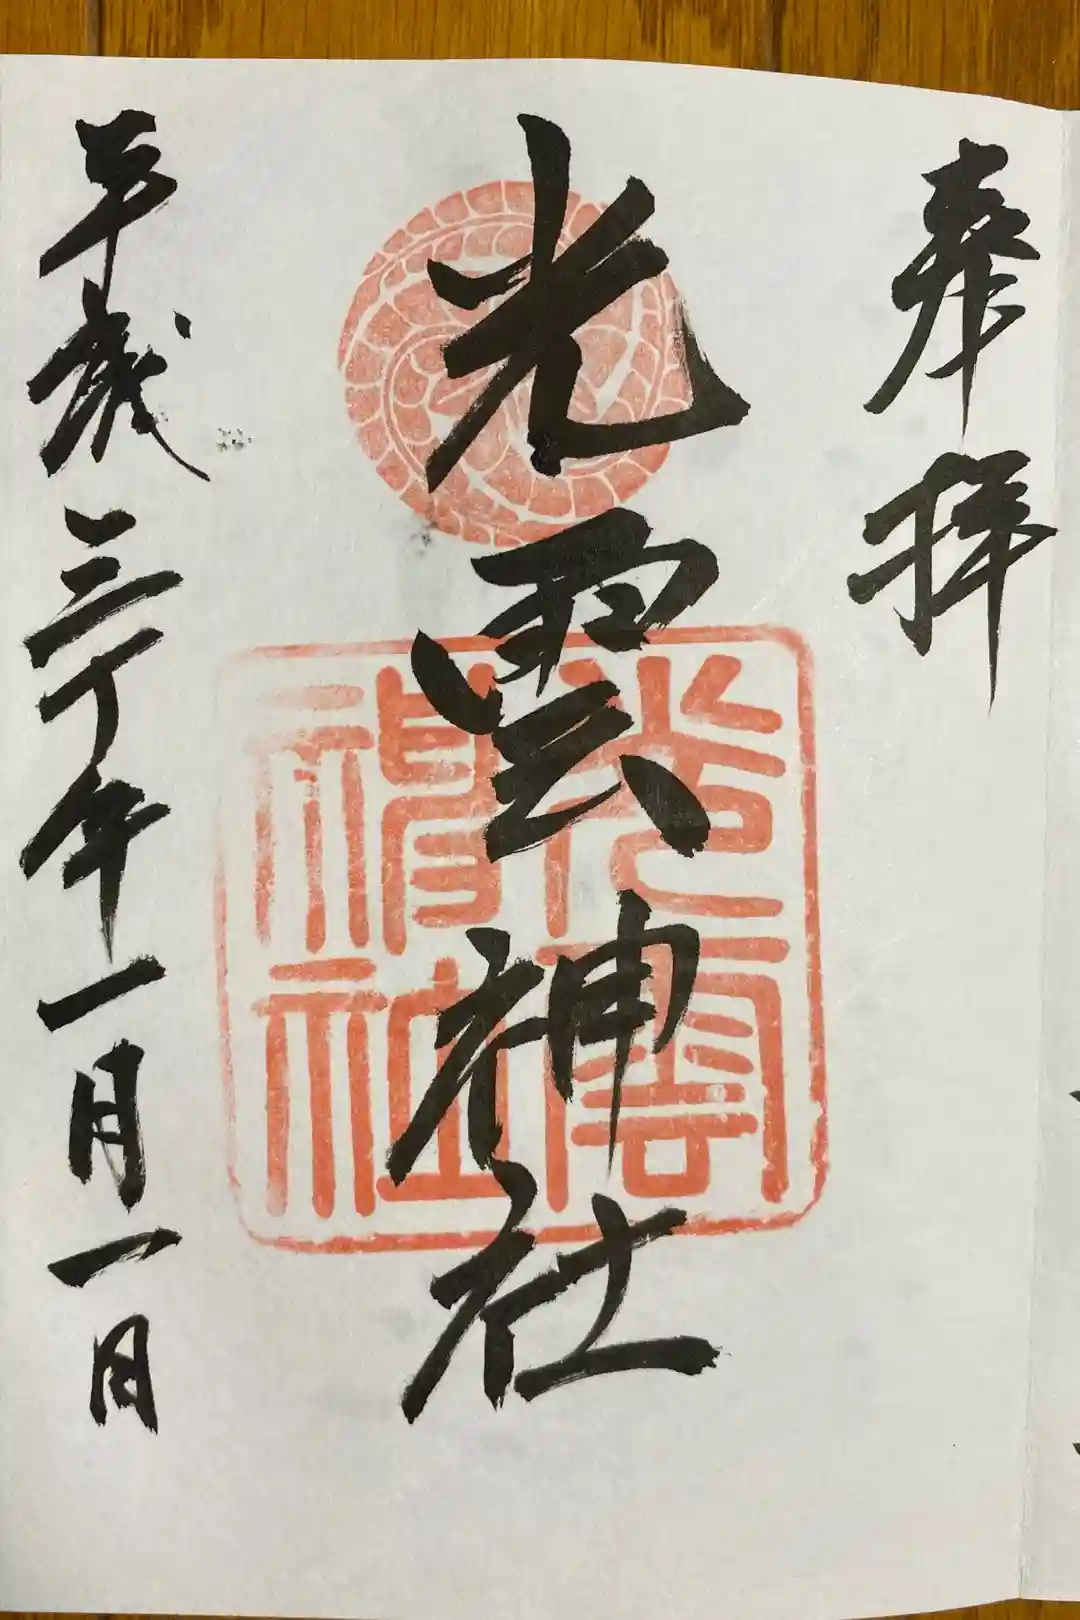 奉拝
光雲神社
光雲神社
平成三十年一月一日